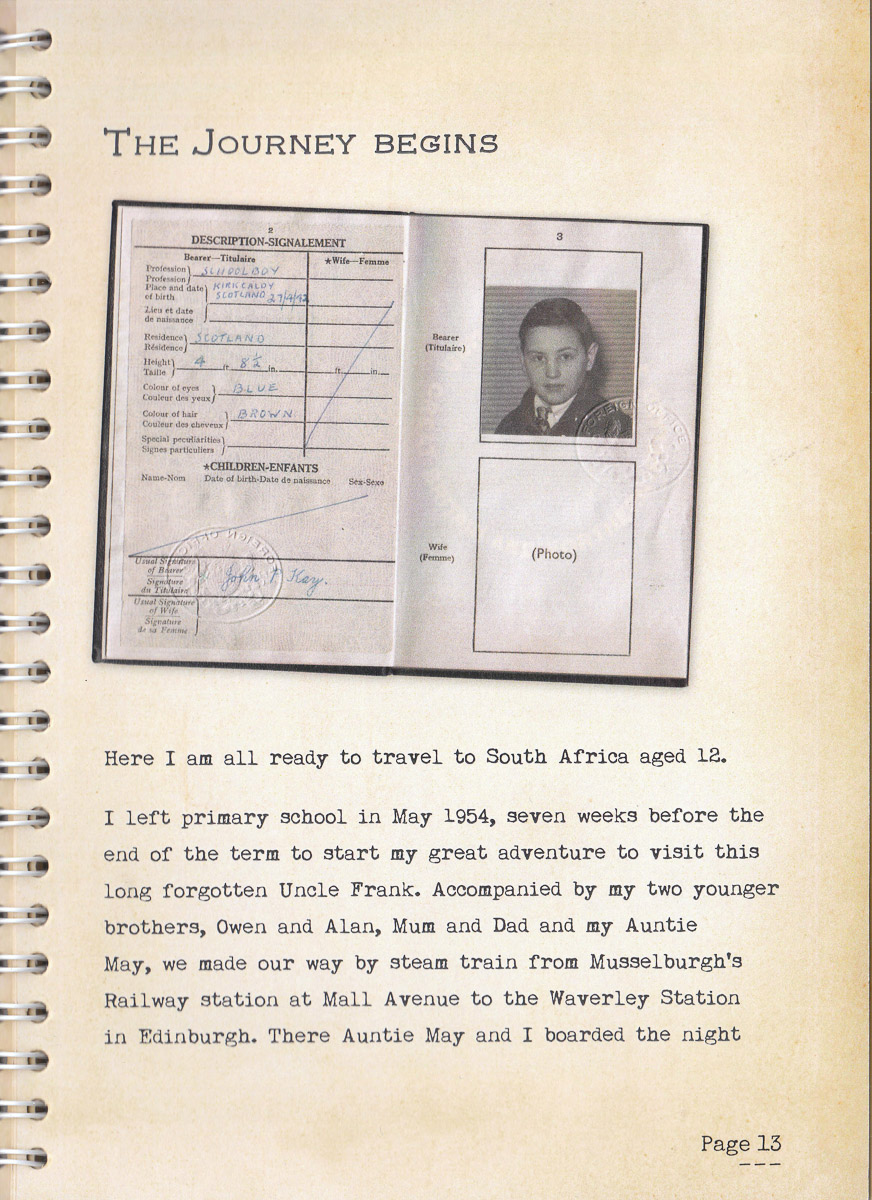 THE JOURNEY BEGINS
2
DESCRIPTION-SIGNALEMENT
Bearer—Titulaire ★Wife—Femme
Profession SCHOOLBOY
Profession
Place and date KIRKCALDY
of birth SCOTLAND 27/4/42
Lieu et date
de naissance
Residence SCOTLAND
Résidence
Height 4 ft. 8½ in. ft. in.
Taille
Colour of eyes BLUE
Couleur des yeux
Colour of hair BROWN
Couleur des cheveux
Special peculiarities
Signes particuliers
★CHILDREN-ENFANTS
Name-Nom Date of birth-Date de naissance Sex-Sexe
Usual Signature
of Bearer
Signature John F Kay.
du Titulaire
Usual Signature
of Wife
Signature
de sa Femme
FOREIGN OFFICE
3
Bearer
(Titulaire)
FOREIGN OFFICE
Wife
(Femme)
(Photo)
Here I am all ready to travel to South Africa aged 12.
I left primary school in May 1954, seven weeks before the
end of the term to start my great adventure to visit this
long forgotten Uncle Frank. Accompanied by my two younger
brothers, Owen and Alan, Mum and Dad and my Auntie
May, we made our way by steam train from Musselburgh's
Railway station at Mall Avenue to the Waverley Station
in Edinburgh. There Auntie May and I boarded the night
Page 13